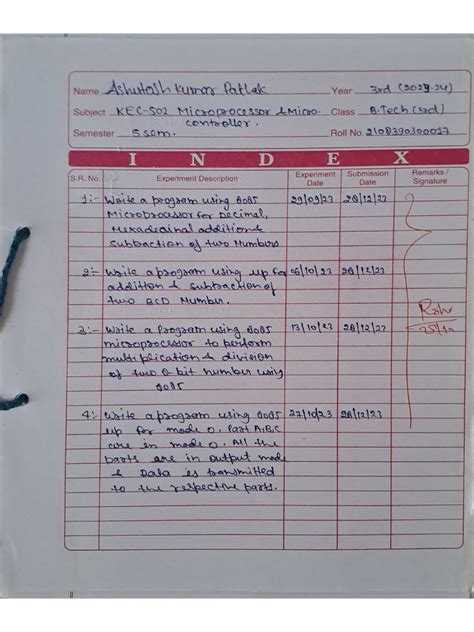 Name Ashutosh Kumar Pathak Year 3rd (2023-24)
Subject KEC-502 Microprocessor & Micro- Class B.Tech (3rd)
controller.
Semester 5 sem. Roll No. 2108390300017
INDEX
S.R. No. Experiment Description Experiment Date Submission Date Remarks / Signature
1:- Write a program using 8085 29/09/23 28/12/23
Microprocessor for Decimal,
Hexadecimal addition &
Subtraction of two Numbers
2:- Write a program using up for 06/10/23 28/12/23
addition & subtraction of
two BCD Number.
3:- Write a program using 8085 13/10/23 28/12/23
microprocessor to perform
multiplication & division
of two 8 bit number using
8085
4:- Write a program using 8085 27/10/23 28/12/23
up for mode 0. Part A,B,C
are in mode 0. All the
parts are in output mode
& Data is transmitted
to the respective parts.